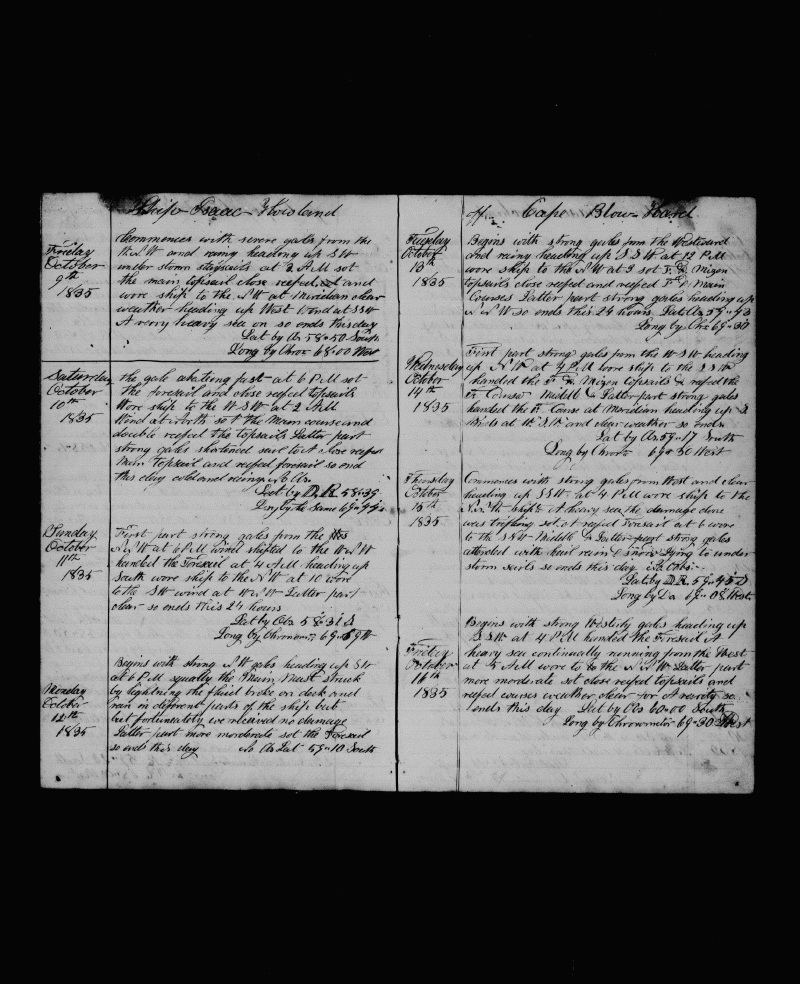 Ship Isaac Howland
Friday
October
9th
1835
Commences with severe gales from the
N.W and rainy heading up SW
under storm staysails at 2 AM sot
the main topsail close reefed and
wore ship to the NW at Meridian clear
weather heading up West Wind at SSW
A very heavy sea on so ends this day
Lat by Obs 58=50 South
Long by Chro 68=00 West
Saturday
October
10th
1835
the gale abating fast at 6 PM sot
the foresail and close reefed topsails
Wore ship to the WSW at 2 AM
Wind at North sot the Main course and
double reefed the topsails Latter part
strong gales shortened sail to A close reefed
Main topsail and reefed foresail so end
this day cold and rainy No Obs
Lat by D.R 58=39
Long by the same 69=44
Sunday
October
11th
1835
First part strong gales from the
N.N.W at 6 PM wind shifted to the W.N.W
handed the Foresail at 4 AM heading up
South wore ship to the NW at 10 wore
to the SW wind at W.N.W Latter part
clear so ends this 24 hours
Lat by Obs 58=31 S
Long by Chronom 69=59 W
Monday
October
12th
1835
Begins with strong N.W gales heading up SW
at 6 PM squally the Main Mast Struck
by lightning the fluid broke on deck and
ran in diferent parts of the ship but
but fortunately we received no damage
Latter part more morderate sot the Foresail
so ends this day No Obs Lat 59=10 South
off Cape Blow Hard
Tuesday
October
13th
1835
Begins with strong gales from the Westward
and rainy heading up SSW at 12 PM
wore ship to the NW at 9 sot F. & Mizen
topsails close reefed and reefed F & Main
Courses Latter part strong gales heading up
N.N.W so ends this 24 hours Lat Obs 59=43
Long by Chro 69=30
Wednesday
October
14th
1835
First part strong gales from the WSW heading
up N.W at 4 PM wore ship to the SSW
handed the F. & Mizen topsails & reefed the
F. Course Middle & Latter part strong gales
handed the F. Course at Meridian heading up S
Winds at W.S.W and clear weather so ends
Lat by Obs 59=17 South
Long by Chron 69=50 West
Thursday
October
15th
1835
Commences with strong gales from West and clear
heading up SSW at 4 PM wore ship to the
N.N.W A heavy sea the damage done
was trifling sot A reefed Foresail at 6 wore
to the SSW Middle & Latter part strong gales
attended with hail rain & snow Lying to under
storm sails so ends this day No Obs
Lat by D.R 59=45 S
Long by Do 69=08 West
Friday
October
16th
1835
Begins with strong Westerly gales heading up
SSW at 4 PM handed the Foresail A
heavy sea continually running from the West
at 5 AM wore to the N.N.W Latter part
more morderate sot close reefed topsails and
reefed courses weather clear for A rarity so
ends this day Lat by Obs 60=00 South
Long by Chronometer 69=30 West